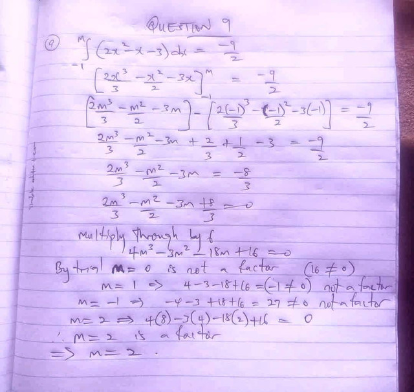 QUESTION 9
(a) ᵐ∫₋₁ (2x² - x - 3)dx = -9/2
[2x³/3 - x²/2 - 3x]ᵐ₋₁ = -9/2
[2m³/3 - m²/2 - 3m] - [2(-1)³/3 - (-1)²/2 - 3(-1)] = -9/2
2m³/3 - m²/2 - 3m + 2/3 + 1/2 - 3 = -9/2
2m³/3 - m²/2 - 3m = -8/3
2m³/3 - m²/2 - 3m + 8/3 = 0
multiply through by 6
4m³ - 3m² - 18m + 16 = 0
By trial m = 0 is not a factor (16 ≠ 0)
m = 1 => 4 - 3 - 18 + 16 = (-1 ≠ 0) not a factor
m = -1 => -4 - 3 + 18 + 16 = 27 ≠ 0 not a factor
m = 2 => 4(8) - 3(4) - 18(2) + 16 = 0
∴ m = 2 is a factor
=> m = 2.